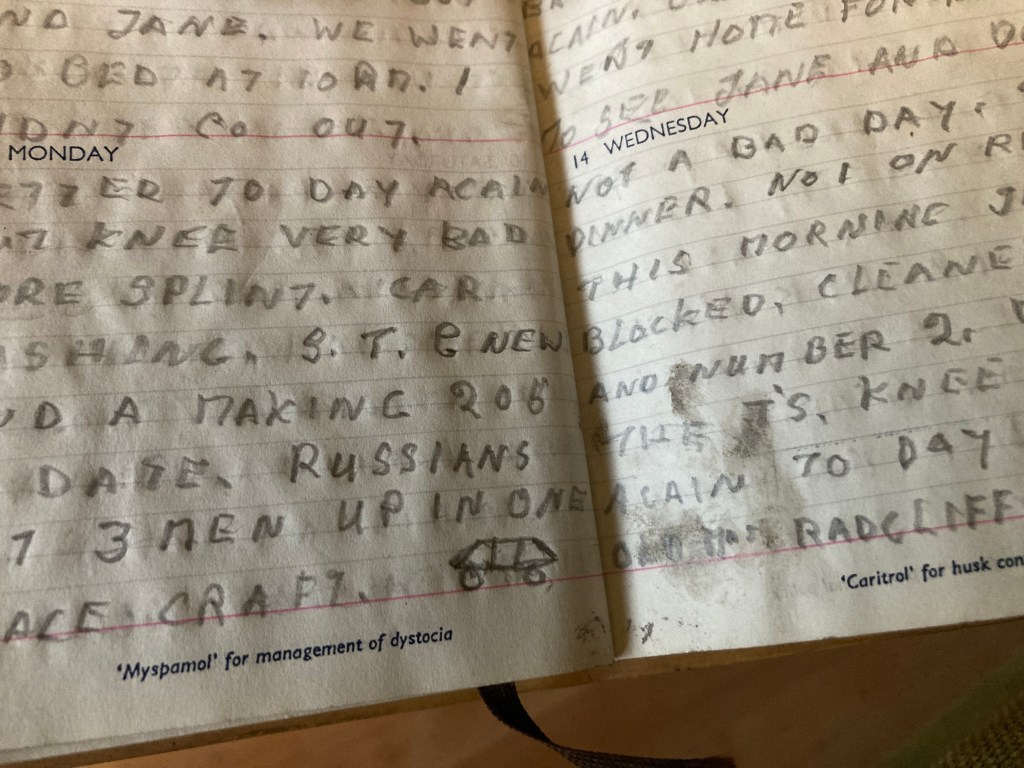 ND JANE. WE WENT
BED AT 10 P.M. I
IDNT GO OUT.
MONDAY
ETTER TO DAY AGAIN
UT KNEE VERY BAD
ORE SPLINT. CAR
ASHING, S. T. C NEW
D A MAKING 206
DATE. RUSSIANS
T 3 MEN UP IN ONE
ACE CRAFT.
'Myspamol' for management of dystocia
AGAIN.
WENT HOME FOR
TO SEE JANE AND
14 WEDNESDAY
NOT A BAD DAY.
DINNER. NO 1 ON
THIS MORNING
BLOCKED, CLEANE
AND NUMBER 2.
THE T'S. KNEE
AGAIN TO DAY
OLD RADCLIFF
'Caritrol' for husk con